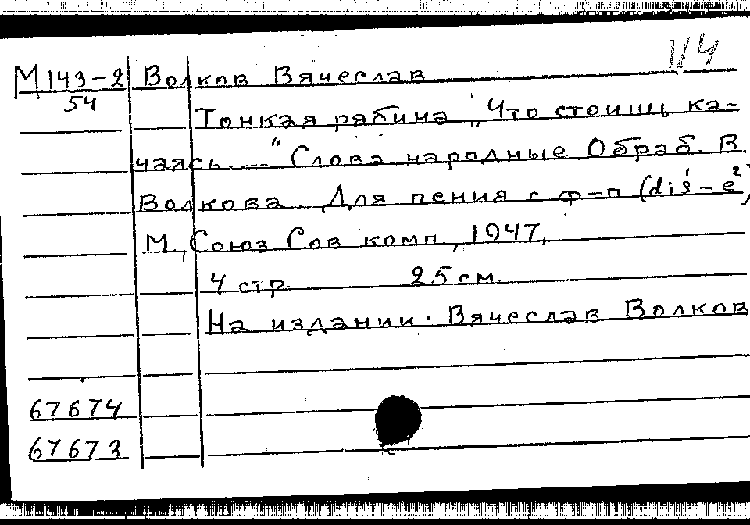 114
М 143-2 Волков Вячеслав
54
Тонкая рябина „Что стоишь ка-
чаясь...." Слова народные Обраб. В.
Волкова. Для пения с ф-п (dis¹-e²)
М., Союз Сов комп, 1947.
4 стр. 25 см.
На издании: Вячеслав Волков
67674
67673